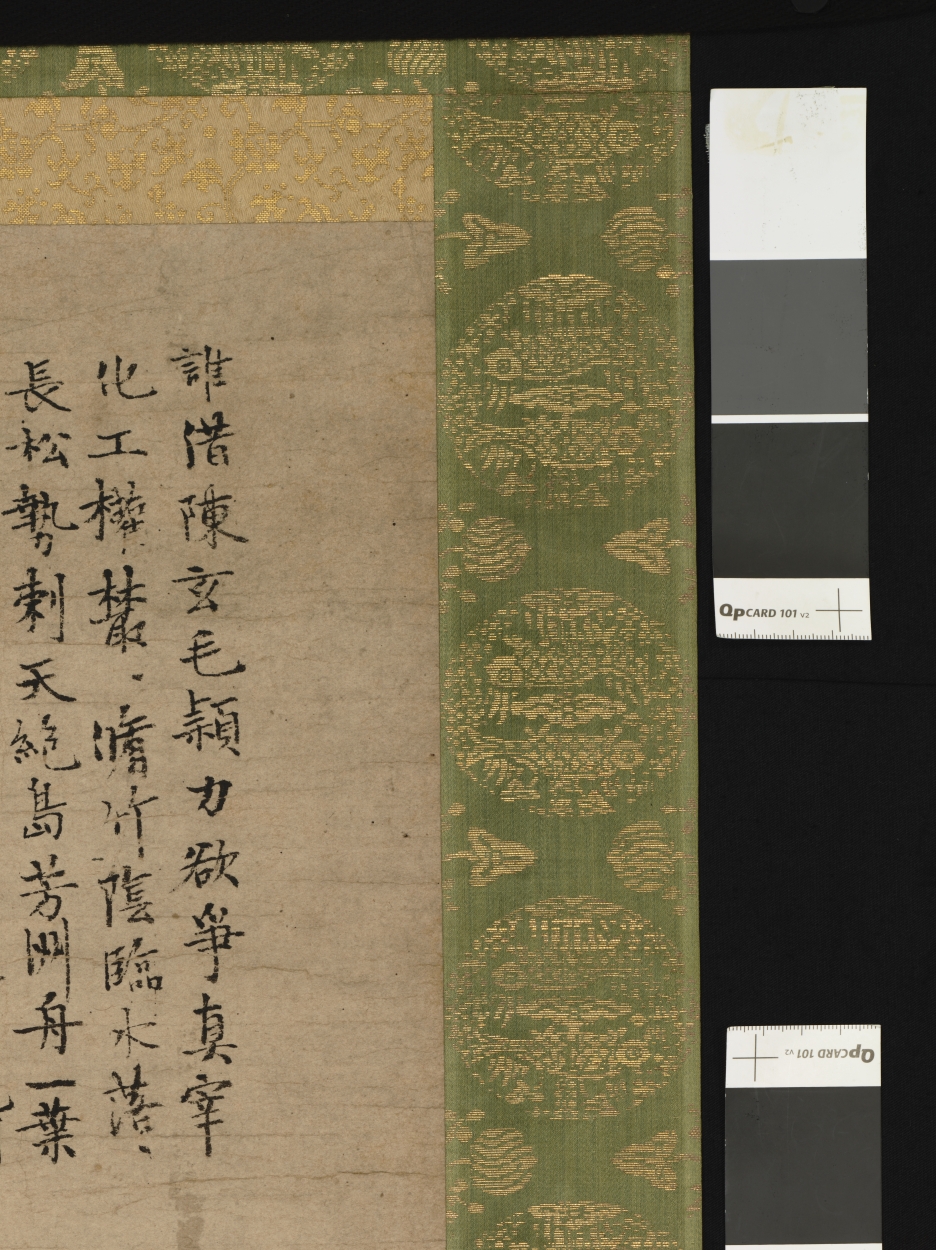 誰借陳玄毛穎力欲爭真宰
化工權叢、簷竹陰臨水落、
長松勢刺天絕島芳洲舟一葉
QpCARD 101 v2
QpCARD 101 v2